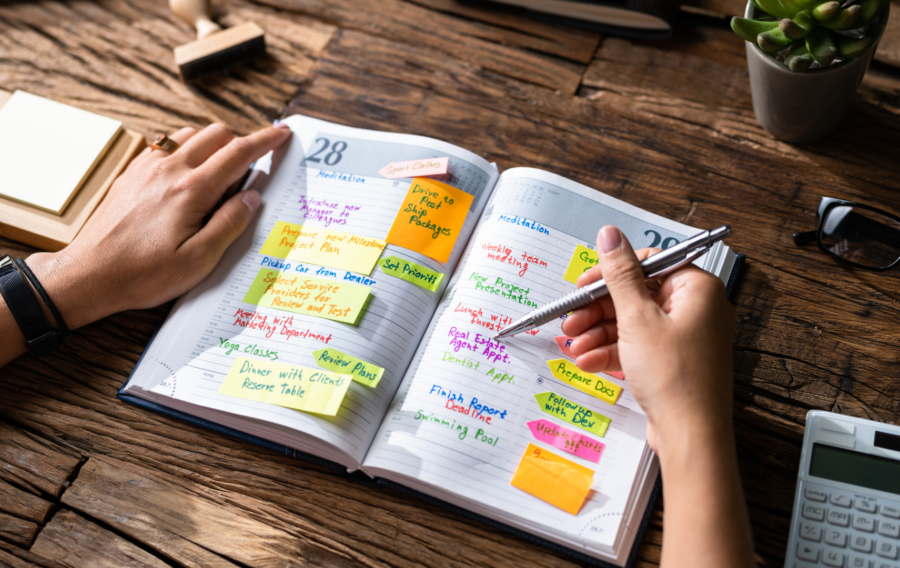 28
Sport Clothes
Meditation
Drive to
Post
Ship
Packages
Introduce new
Manager to
colleagues
Prepare new Milestone
Project Plan
Set Prioriti
Pickup Car from Dealer
Select Service
Providers for
Review and Test
Meeting with
Marketing Department
Yoga classes
Review Plans
Dinner with Clients
Reserve Table
29
Meditation
Weekly team
meeting
Get
New Project
Presentation
Lunch with
Invest
Real Estate
Agent Appt.
Dentist Appt.
Prepare Docs
Finish Report
Deadline
Follow up
with Dev
Swimming Pool
Update Charts
!!!